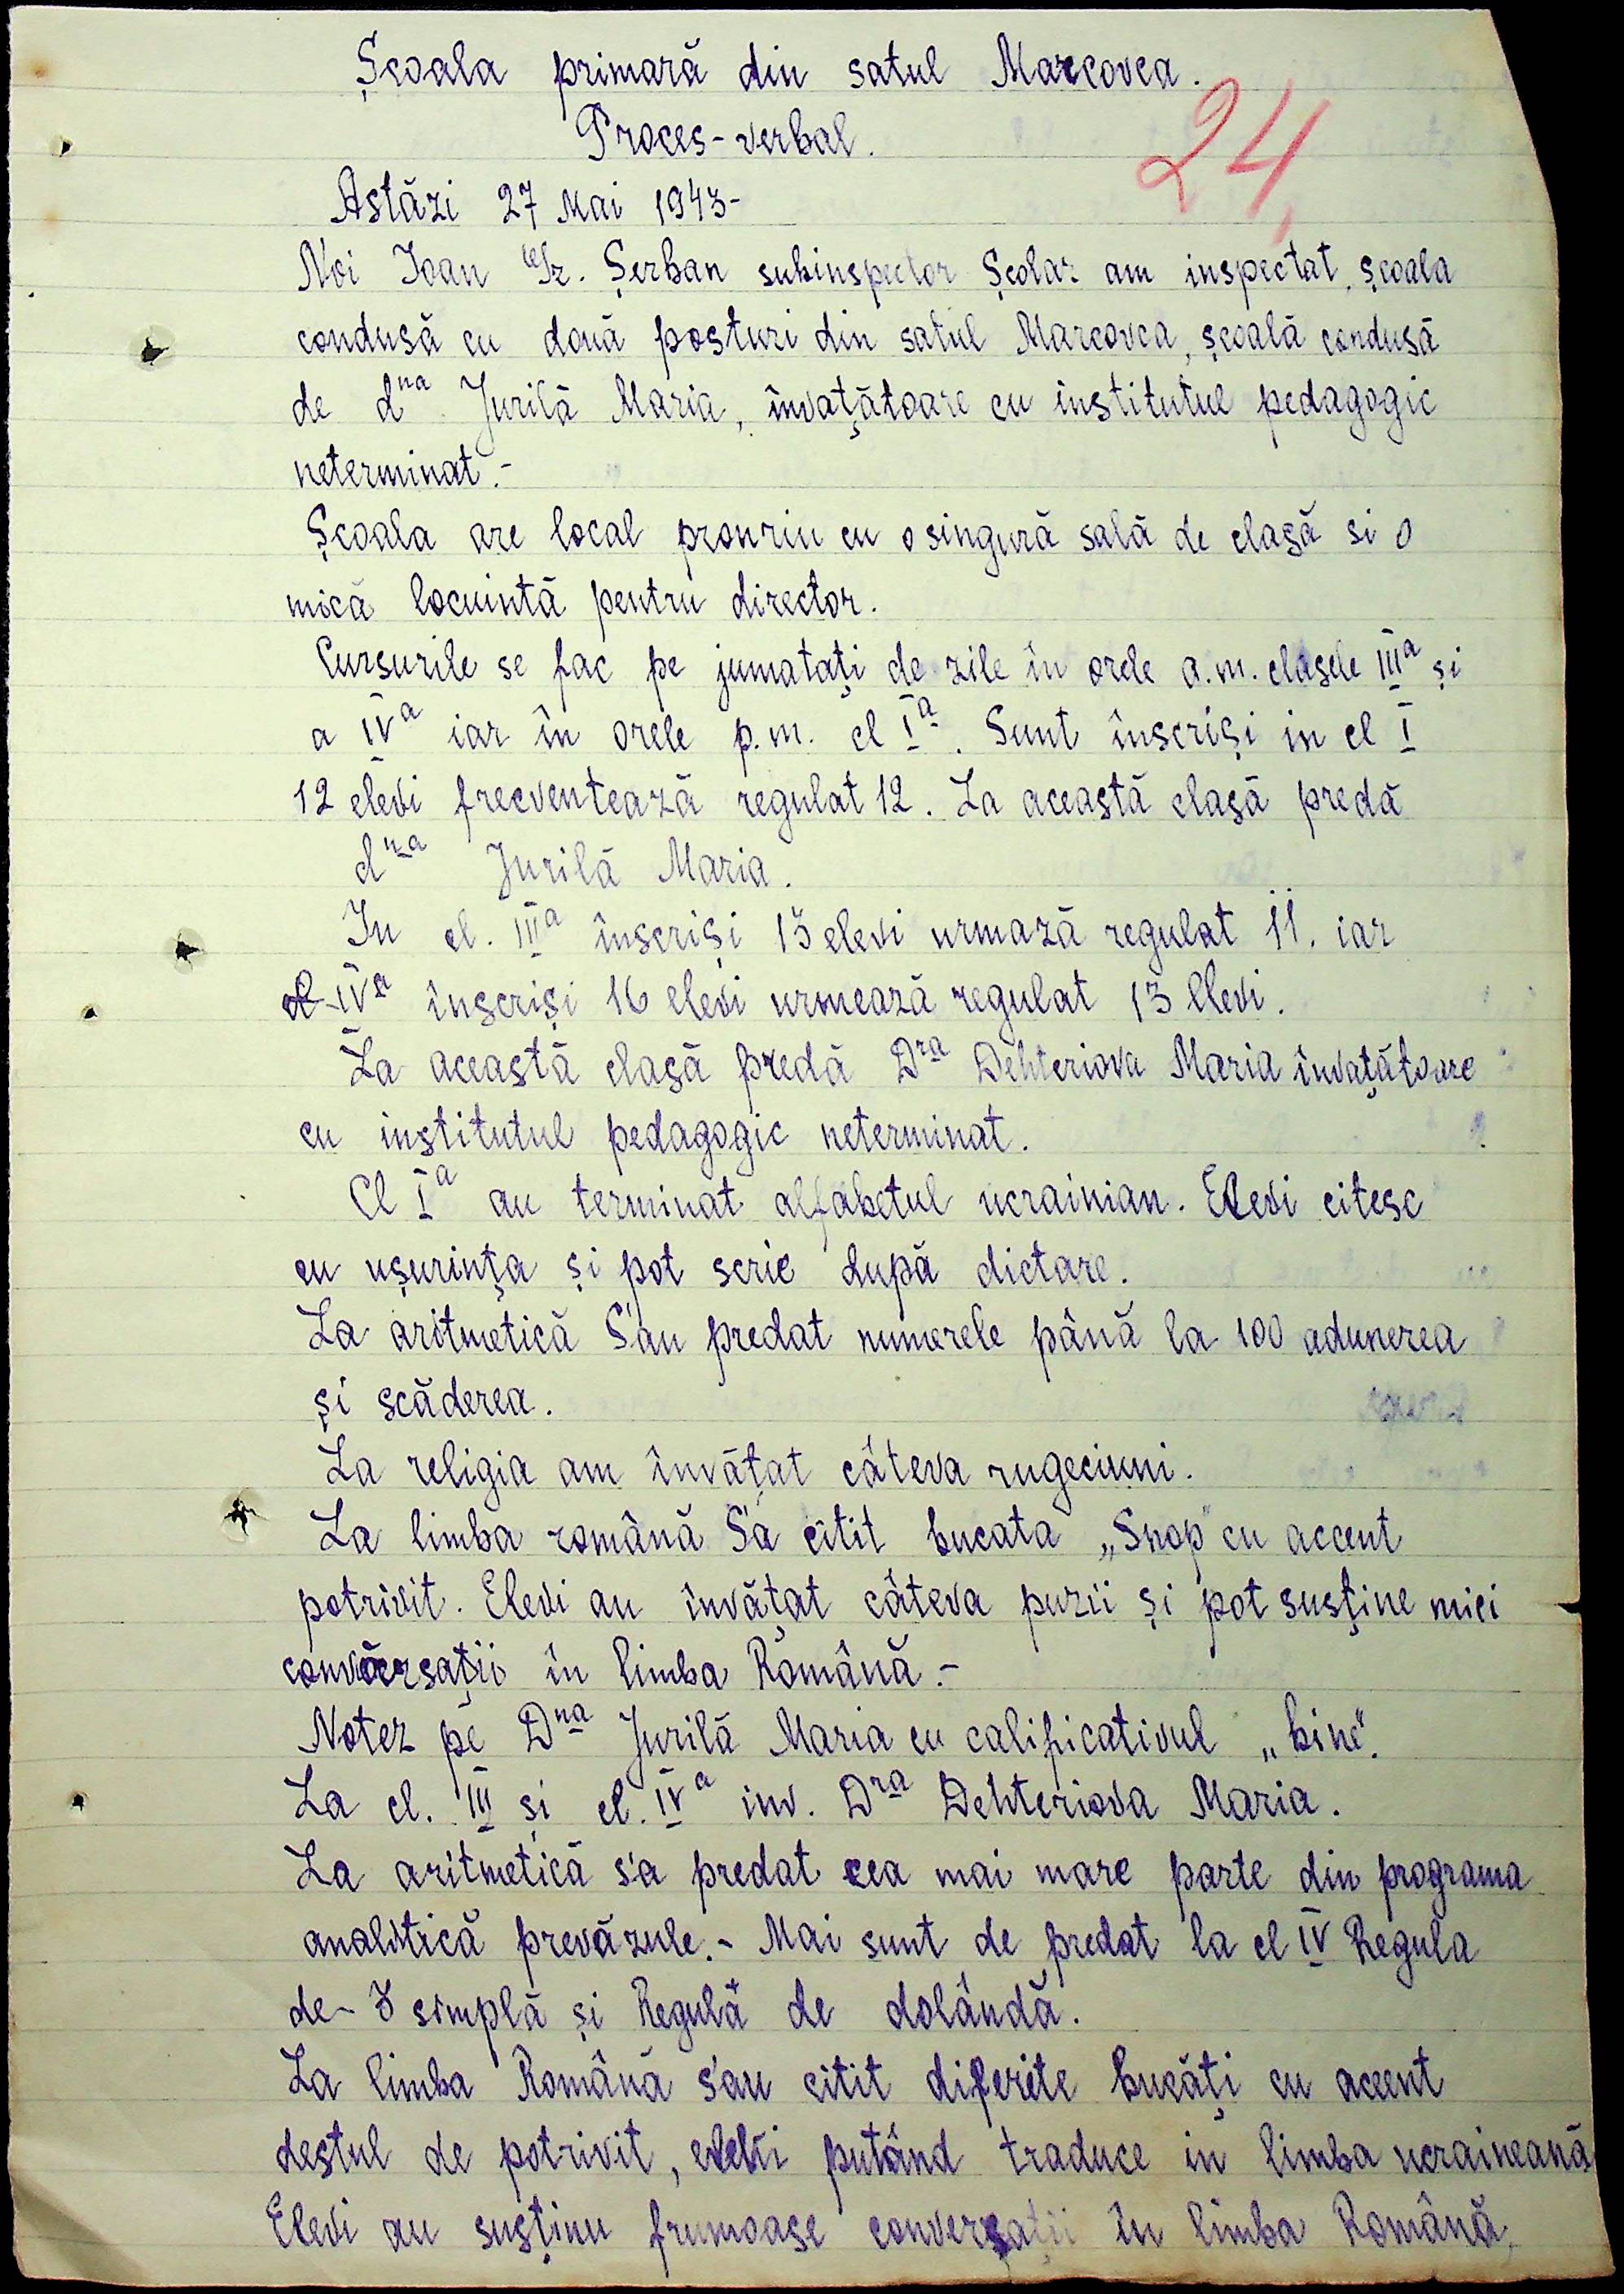 Școala primară din satul Marcovca.
24,
Proces-verbal.
Astăzi 27 Mai 1943-
Noi Ioan Gr. Șerban subinspector Școlar am inspectat, școala
condusă cu două posturi din satul Marcovca, școală condusă
de dna Jurilă Maria, învațătoare cu institutul pedagogic
neterminat.-
Școala are local propriu cu o singură sală de clasă si o
mică locuintă pentru director.
Cursurile se fac pe jumatați de zile în orele a.m. clasele IIIa și
a IVa iar în orele p.m. cl Ia. Sunt înscriși in cl I
12 elevi frecventează regulat 12. La această clasă predă
dna Jurilă Maria.
In cl. IIIa înscriși 13 elevi urmază regulat 11. iar
cl IVa înscriși 16 elevi urmează regulat 13 Elevi.
La această clasă predă Dra Dehteriova Maria învațătoare
cu institutul pedagogic neterminat.
Cl Ia au terminat alfabetul ucrainian. Elevi citesc
cu ușurința și pot scrie după dictare.
La aritmetică S'au predat numerele până la 100 adunerea
și scăderea.
La religia am învățat câteva rugeciuni.
La limba română S'a citit bucata „Snop" cu accent
potrivit. Elevi au învățat câteva puzii și pot susține mici
conversații în limba Română.-
Notez pe Dna Jurilă Maria cu calificativul „bine".
La cl. III și cl. IVa inv. Dra Dehteriova Maria.
La aritmetică s'a predat cea mai mare parte din programa
analitică prevăzule.- Mai sunt de predat la cl IV Regula
de- 3 simplă și Regulă de dolândă.
La limba Română s'au citit diferite bucăți cu accent
destul de potrivit, elevii putând traduce in limba ucraineană
Elevi au susținu frumoase conversații în limba Română,